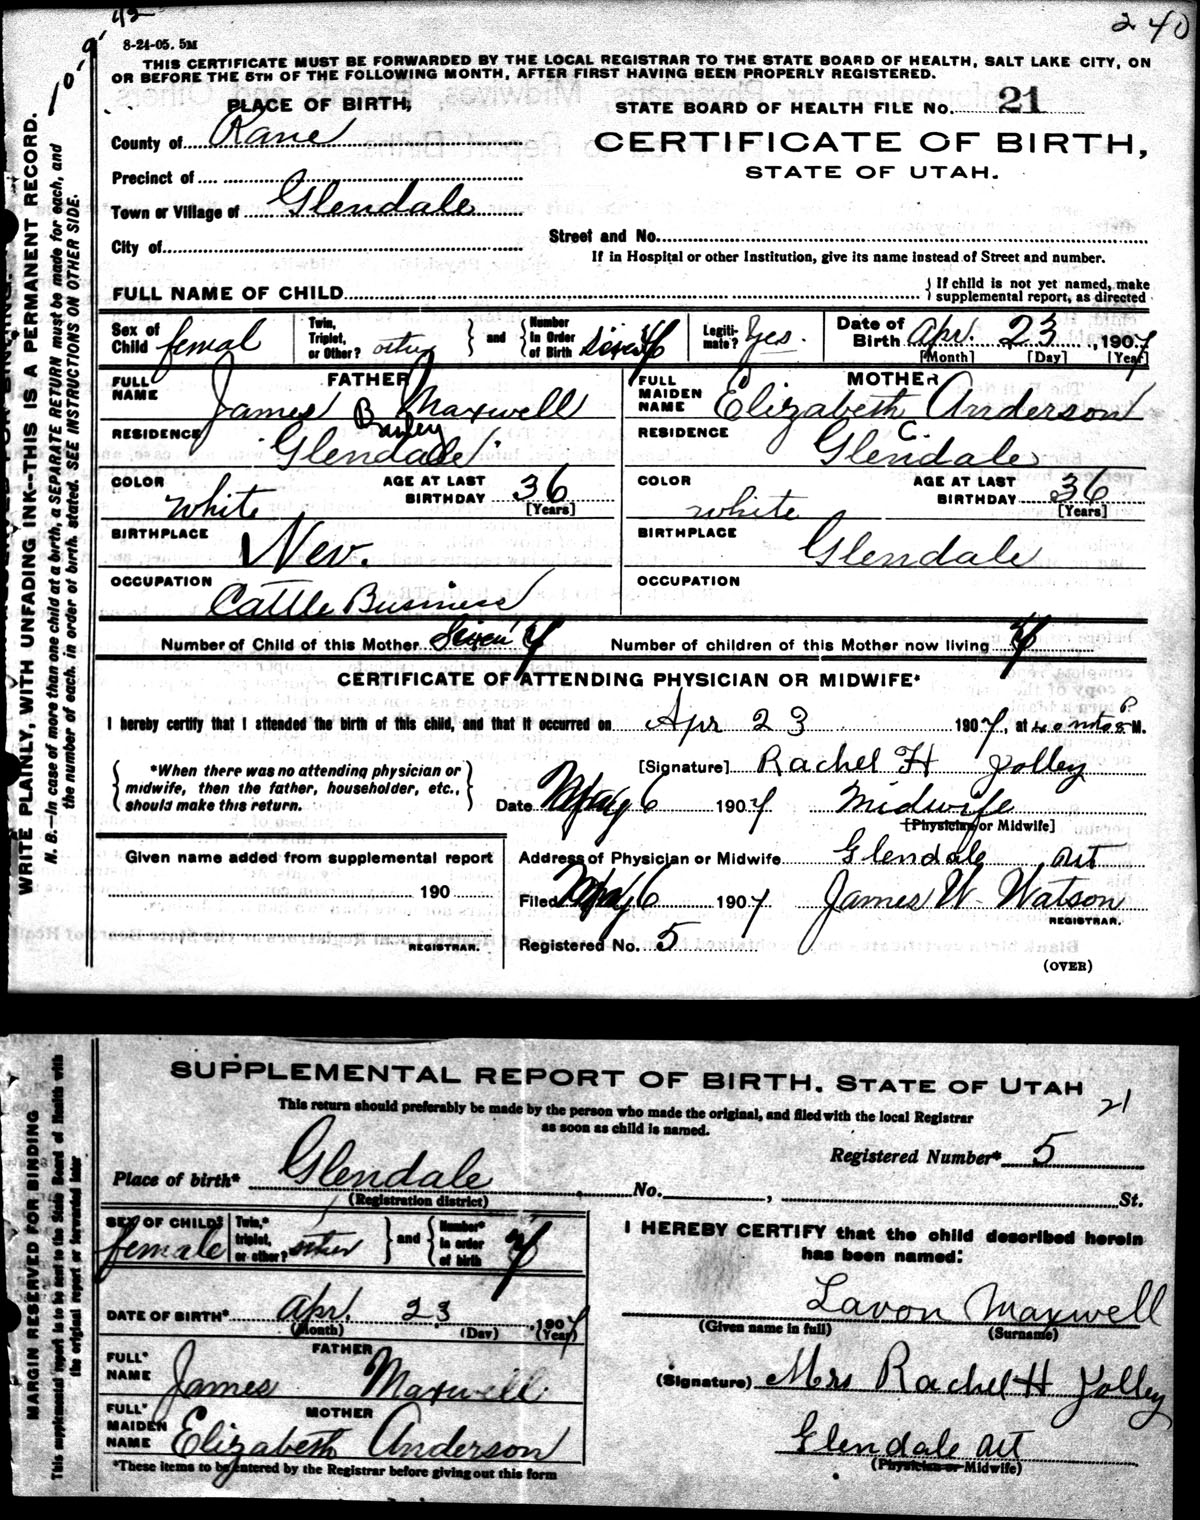 240
8-24-05. 5M
THIS CERTIFICATE MUST BE FORWARDED BY THE LOCAL REGISTRAR TO THE STATE BOARD OF HEALTH, SALT LAKE CITY, ON
OR BEFORE THE 5TH OF THE FOLLOWING MONTH, AFTER FIRST HAVING BEEN PROPERLY REGISTERED.
PLACE OF BIRTH,
STATE BOARD OF HEALTH FILE No. 21
County of Kane
CERTIFICATE OF BIRTH,
STATE OF UTAH.
Precinct of
Town or Village of Glendale
City of
Street and No.
If in Hospital or other Institution, give its name instead of Street and number.
FULL NAME OF CHILD
If child is not yet named, make
supplemental report, as directed
Sex of Child femal
Twin, Triplet, or Other? other
and Number In Order of Birth 7
Legiti-mate? Yes.
Date of Birth Apr. 23, 1907
[Month] [Day] [Year]
FATHER
FULL NAME James B Maxwell
Bailey
RESIDENCE Glendale
COLOR white
AGE AT LAST BIRTHDAY 36
[Years]
BIRTHPLACE Nev.
OCCUPATION Cattle Business
MOTHER
FULL MAIDEN NAME Elizabeth Anderson
C.
RESIDENCE Glendale
COLOR white
AGE AT LAST BIRTHDAY 36
[Years]
BIRTHPLACE Glendale
OCCUPATION
Number of Child of this Mother Seven 7 Number of children of this Mother now living 7
CERTIFICATE OF ATTENDING PHYSICIAN OR MIDWIFE*
I hereby certify that I attended the birth of this child, and that it occurred on Apr 23 1907, at P M.
*When there was no attending physician or
midwife, then the father, householder, etc.,
should make this return.
[Signature] Rachel H Jolley
Date May 6 1907 Midwife
[Physician or Midwife]
Given name added from supplemental report
190
REGISTRAR.
Address of Physician or Midwife Glendale Ut
Filed May 6 1907 James W. Watson
REGISTRAR.
Registered No. 5
(OVER)
WRITE PLAINLY, WITH UNFADING INK--THIS IS A PERMANENT RECORD.
N. B.—In case of more than one child at a birth, a SEPARATE RETURN must be made for each, and
the number of each, in order of birth, stated. SEE INSTRUCTIONS ON OTHER SIDE.
SUPPLEMENTAL REPORT OF BIRTH. STATE OF UTAH
21
This return should preferably be made by the person who made the original, and filed with the local Registrar
as soon as child is named.
Registered Number* 5
Place of birth* Glendale No. , St.
(Registration district)
SEX OF CHILD* female
Twin,* triplet, or other? other
and Number* in order of birth 7
DATE OF BIRTH* Apr. 23, 1907
(Month) (Day) (Year)
FATHER
FULL* NAME James Maxwell
MOTHER
FULL* MAIDEN NAME Elizabeth Anderson
*These items to be entered by the Registrar before giving out this form
I HEREBY CERTIFY that the child described herein
has been named:
Lavon Maxwell
(Given name in full) (Surname)
(Signature) Mrs Rachel H Jolley
Glendale Ut
(Physician or Midwife)
MARGIN RESERVED FOR BINDING
This supplemental report is to be sent to the State Board of Health with
the original report or forwarded later